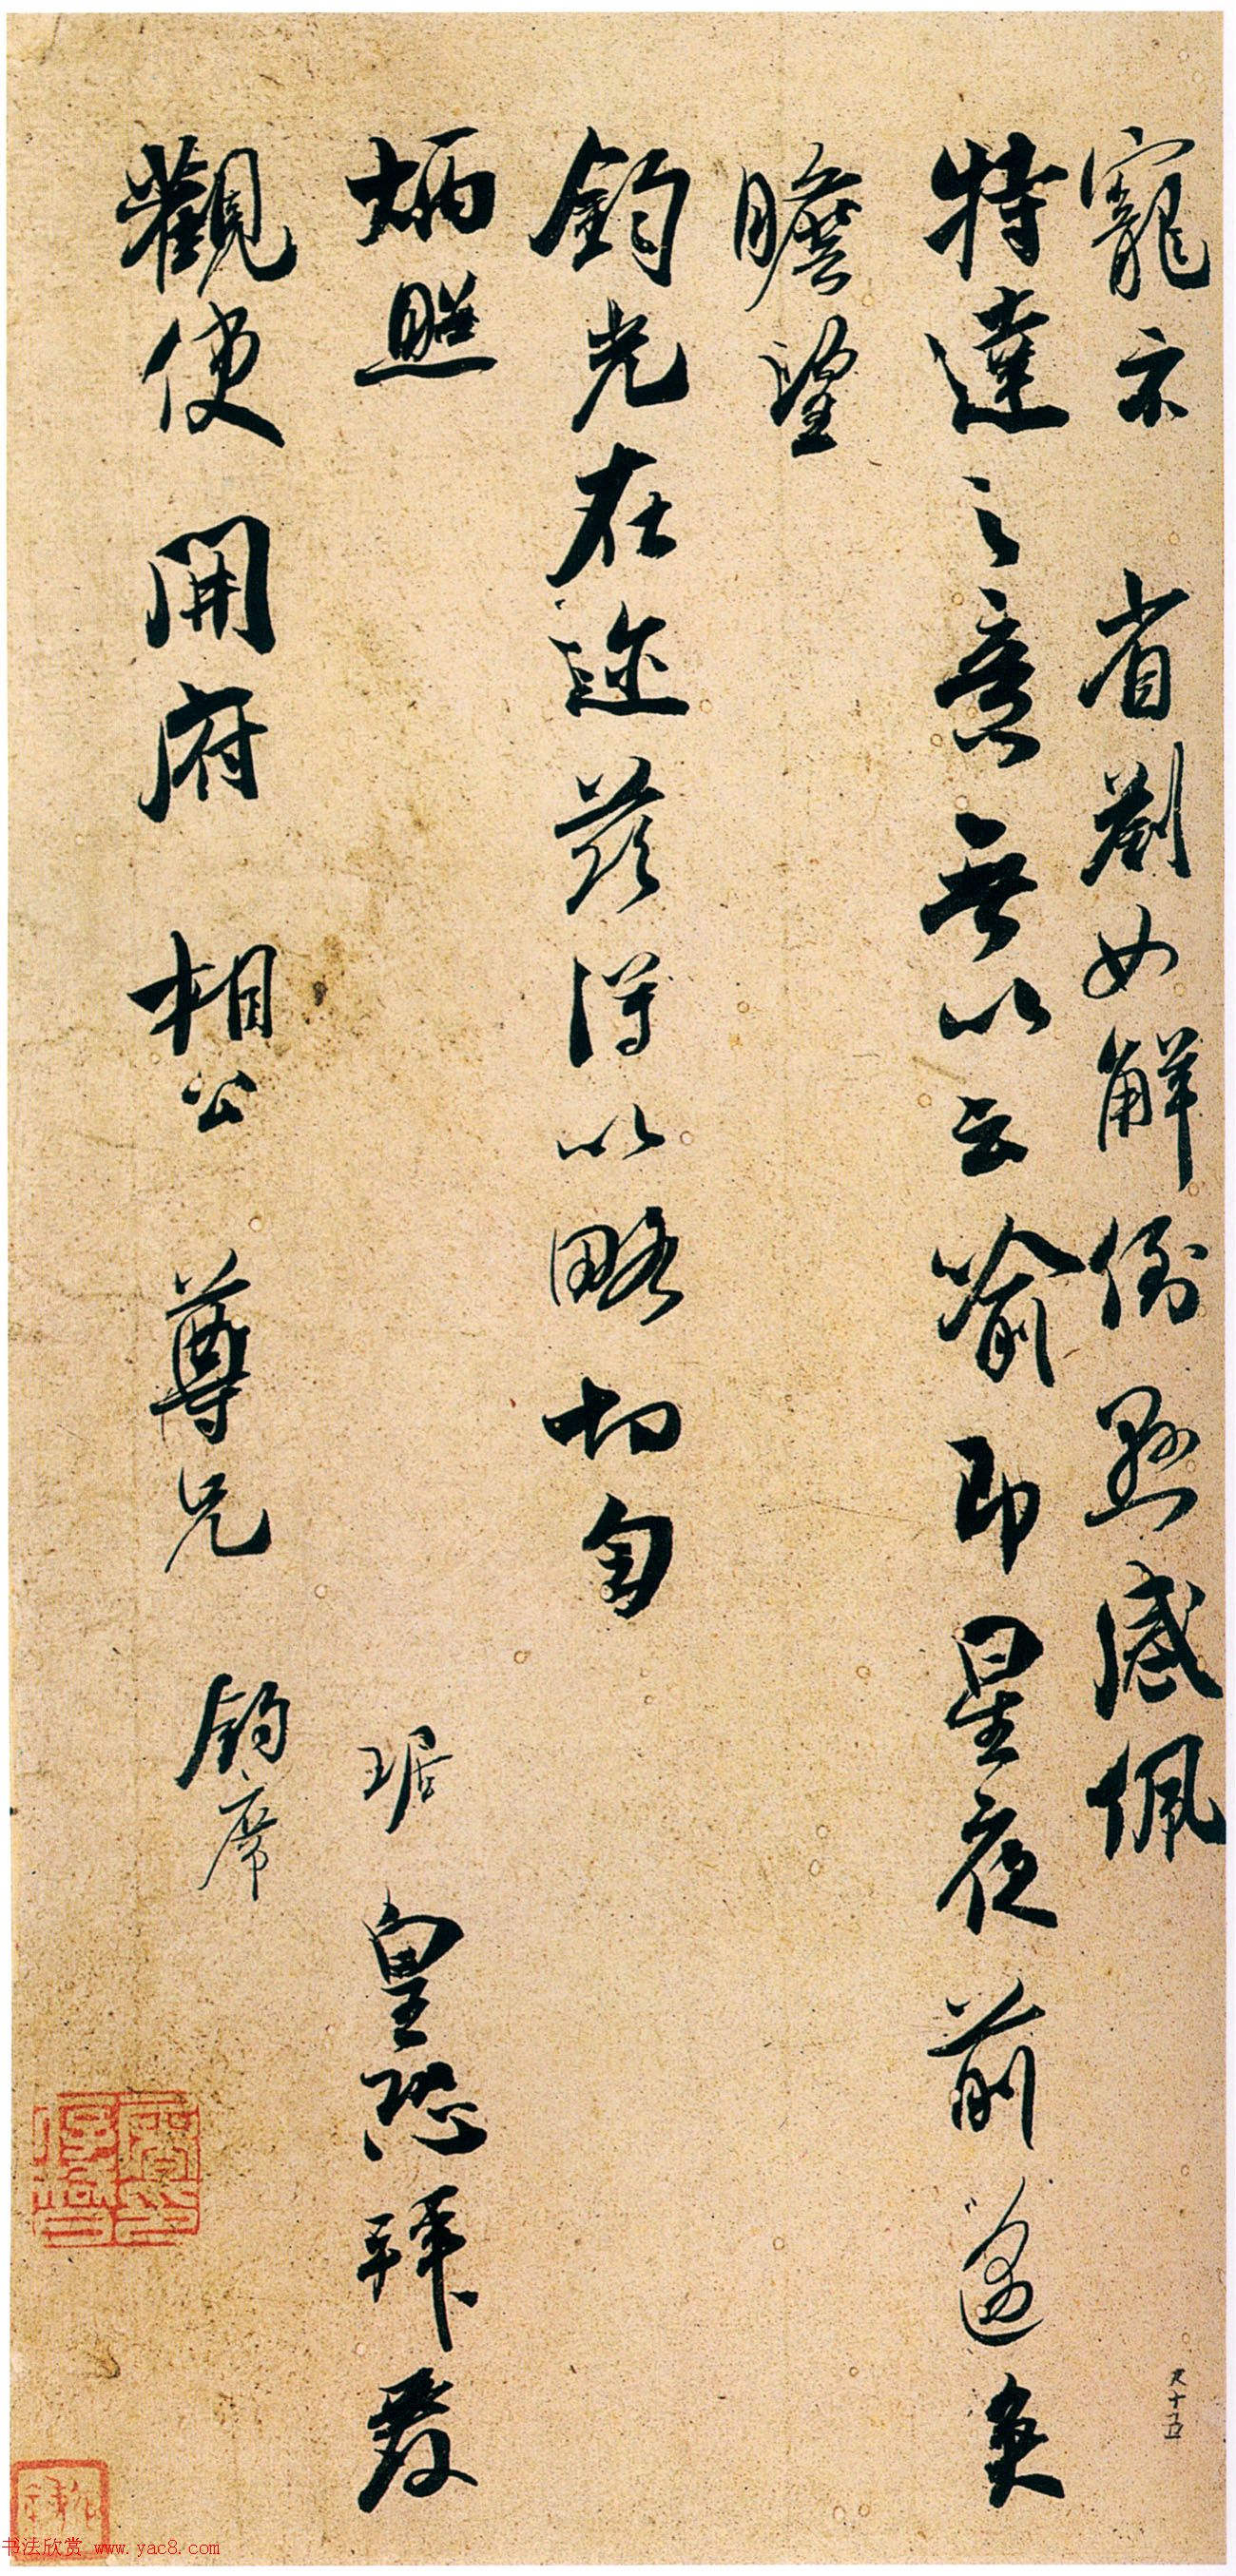 寵示 省劄如解倒懸感佩
特達之意無以云喻即星夜前邁矣
瞻望
鈞光在邇茲得以略切匄
炳照
琚皇恐拜覆
觀使開府相公尊兄 鈞席
书法欣赏 www.yac8.com